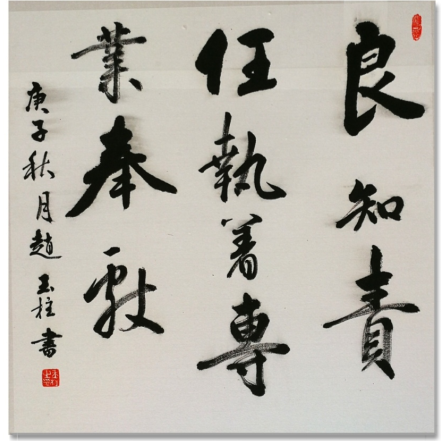 良知責
任執着專
業奉献
庚子秋月趙玉柱書